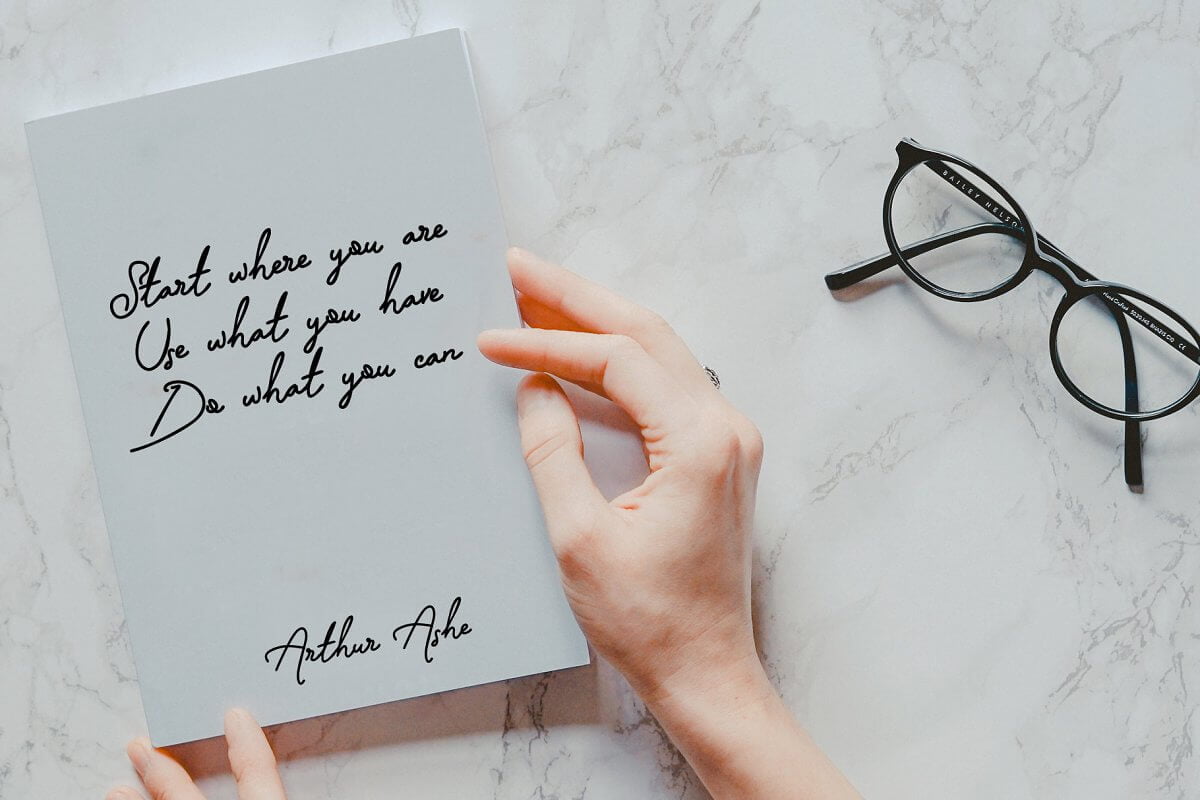 Start where you are
Use what you have
Do what you can
Arthur Ashe
BAILEY NELSON